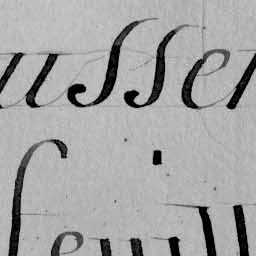 ussen
feuill